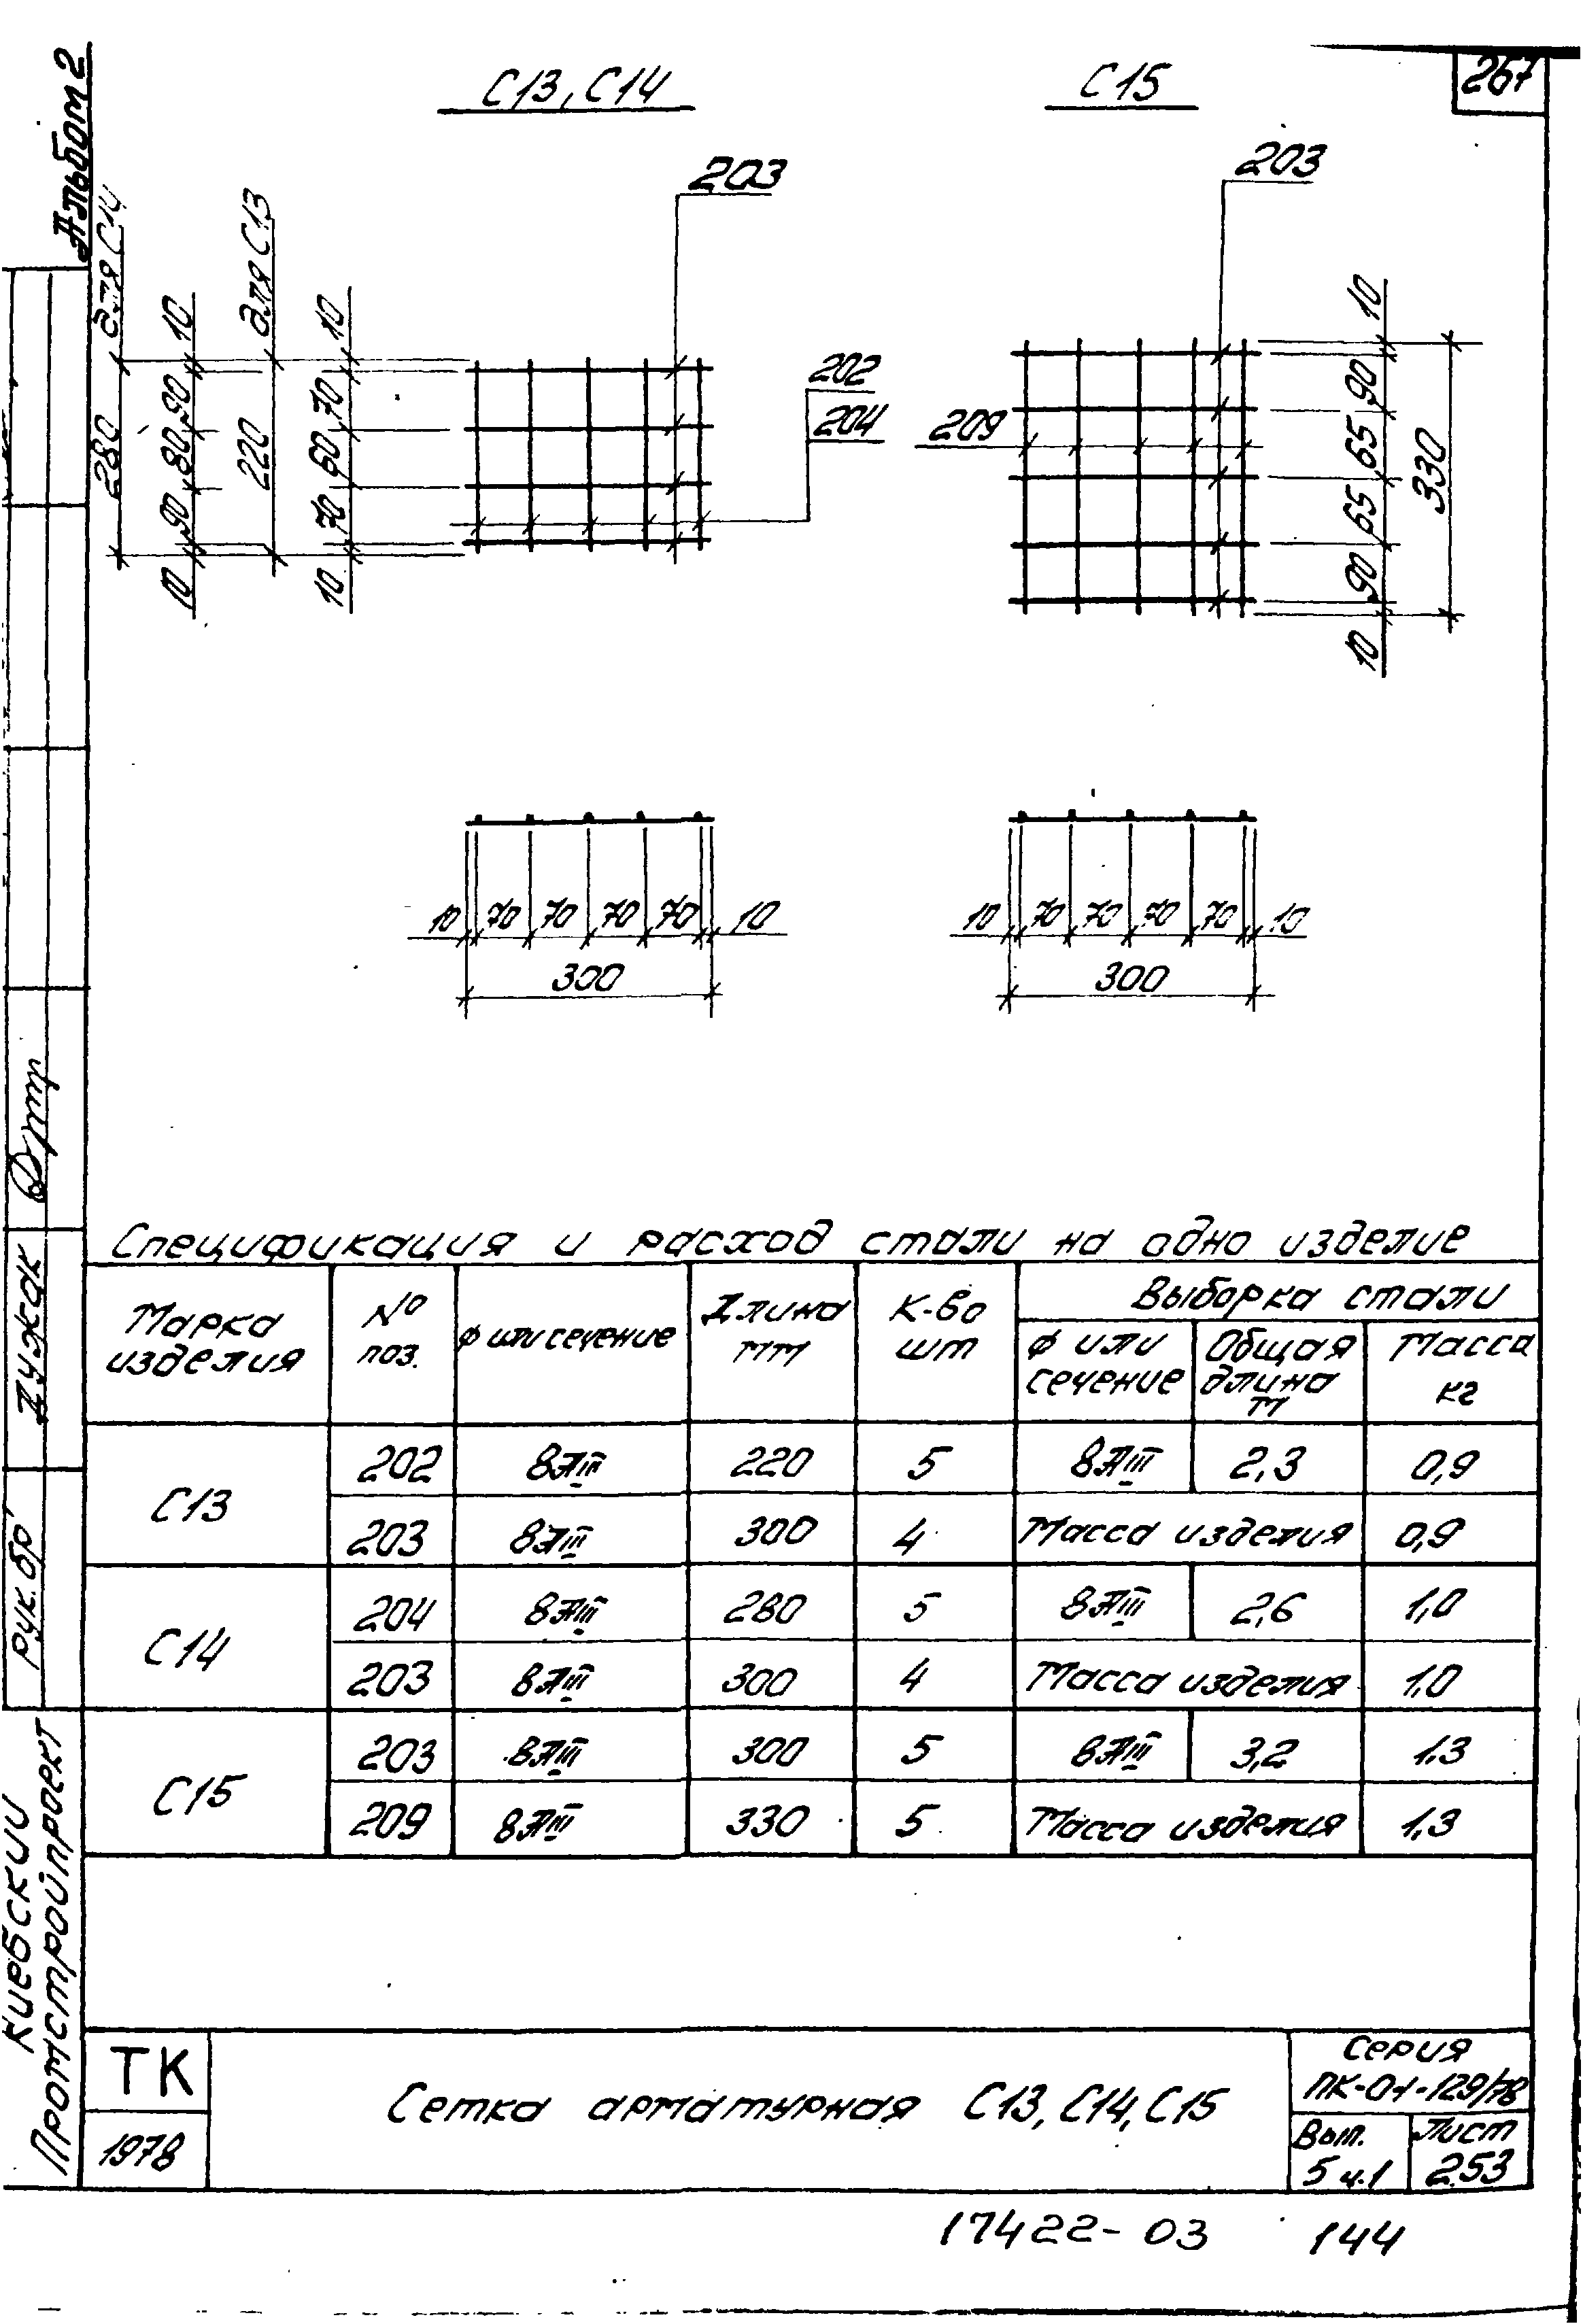 Альбом 2
267
С13, С14
С15
203
203
для С14
280
10
90
80
90
10
для С13
220
10
70
60
70
10
202
204
209
10
90
65
65
90
10
330
10 70 70 70 70 10
300
10 70 70 70 70 10
300
Спецификация и расход стали на одно изделие
Марка изделия | № поз. | ф или сечение | Длина мм | К-во шт | Выборка стали
ф или сечение | Общая длина м | Масса кг
С13 | 202 | 8АIII | 220 | 5 | 8АIII | 2,3 | 0,9
203 | 8АIII | 300 | 4 | Масса изделия | 0,9
С14 | 204 | 8АIII | 280 | 5 | 8АIII | 2,6 | 1,0
203 | 8АIII | 300 | 4 | Масса изделия | 1,0
С15 | 203 | 8АIII | 300 | 5 | 8АIII | 3,2 | 1,3
209 | 8АIII | 330 | 5 | Масса изделия | 1,3
Рук. бр. Дужак
Киевский
Промстройпроект
ТК
1978
Сетка арматурная С13, С14, С15
Серия
ПК-01-129/78
Вып.
5 ч.1
Лист
253
17422-03 144